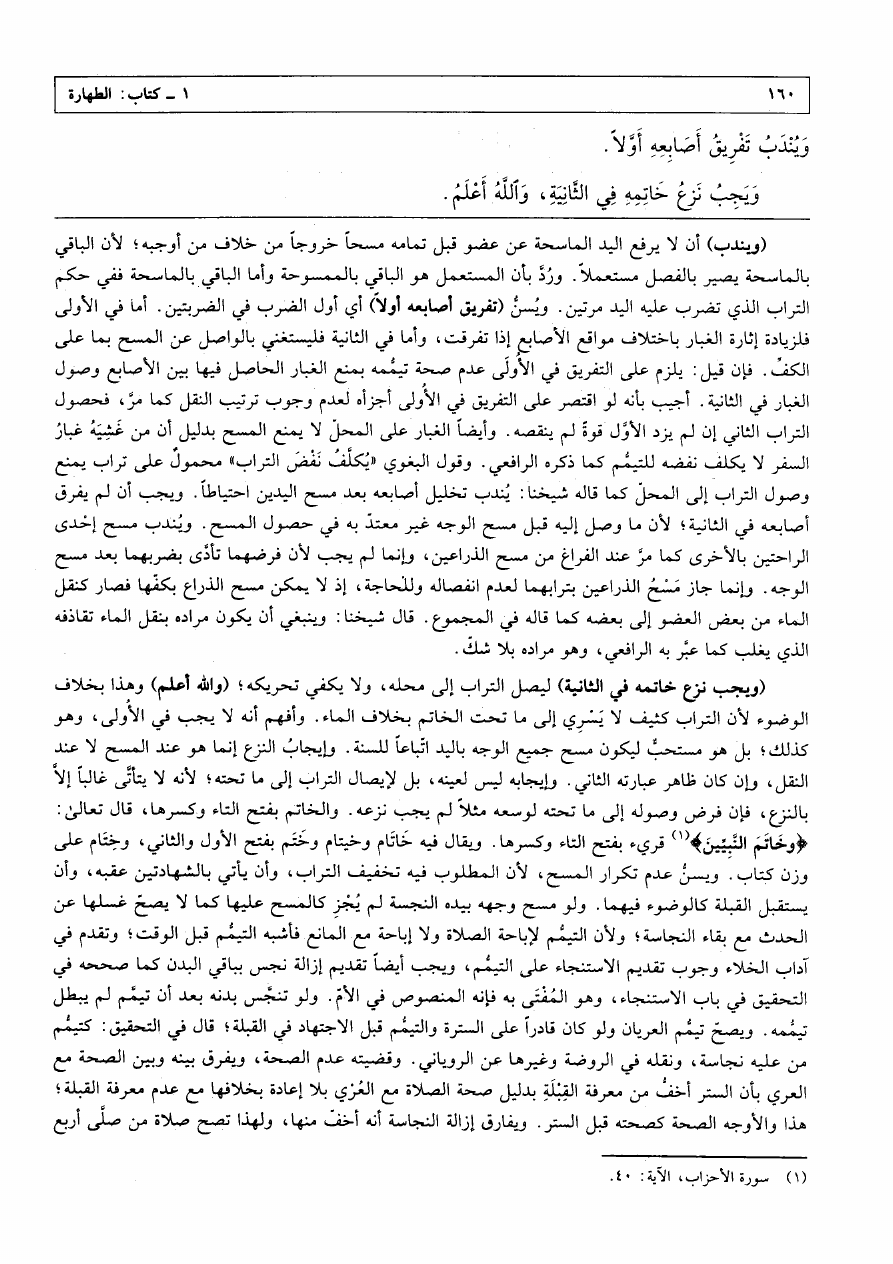 ١٦٠
١ ـ كتاب: الطهارة
وَيُنْدَبُ تَفْرِيقُ أَصَابِعِهِ أَوَّلاً.
وَيَجِبُ نَزْعُ خَاتِمِهِ فِي الثَّانِيَةِ، وَٱللَّهُ أَعْلَمُ.
(ويندب) أن لا يرفع اليد الماسحة عن عضو قبل تمامه مسحاً خروجاً من خلاف من أوجبه؛ لأن الباقي
بالماسحة يصير بالفصل مستعملاً. ورُدَّ بأن المستعمل هو الباقي بالممسوحة وأما الباقي بالماسحة ففي حكم
التراب الذي تضرب عليه اليد مرتين. ويُسنُّ (تفريق أصابعه أولاً) أي أول الضرب في الضربتين. أما في الأولى
فلزيادة إثارة الغبار باختلاف مواقع الأصابع إذا تفرقت، وأما في الثانية فليستغني بالواصل عن المسح بما على
الكفّ. فإن قيل: يلزم على التفريق في الأُولَى عدم صحة تيمُّمه بمنع الغبار الحاصل فيها بين الأصابع وصول
الغبار في الثانية. أجيب بأنه لو اقتصر على التفريق في الأُولى أجزأه لعدم وجوب ترتيب النقل كما مرَّ، فحصول
التراب الثاني إن لم يزد الأوَّل قوةً لم ينقصه. وأيضاً الغبار على المحلّ لا يمنع المسح بدليل أن من غَشِيَهُ غبارُ
السفر لا يكلف نفضه للتيمُّم كما ذكره الرافعي. وقول البغوي «يُكَلَّفُ نَفْضَ التراب» محمولٌ على تراب يمنع
وصول التراب إلى المحلّ كما قاله شيخنا: يُندب تخليل أصابعه بعد مسح اليدين احتياطاً. ويجب أن لم يفرق
أصابعه في الثانية؛ لأن ما وصل إليه قبل مسح الوجه غير معتدّ به في حصول المسح. ويُندب مسح إحْدى
الراحتين بالأخرى كما مرَّ عند الفراغ من مسح الذراعين، وإنما لم يجب لأن فرضهما تأدَّى بضربهما بعد مسح
الوجه. وإنما جاز مَسْحُ الذراعين بترابهما لعدم انفصاله وللحاجة، إذ لا يمكن مسح الذراع بكفّها فصار كنقل
الماء من بعض العضو إلى بعضه كما قاله في المجموع. قال شيخنا: وينبغي أن يكون مراده بنقل الماء تقاذفه
الذي يغلب كما عبَّر به الرافعي، وهو مراده بلا شكّ.
(ويجب نزع خاتمه في الثانية) ليصل التراب إلى محله، ولا يكفي تحريكه؛ (والله أعلم) وهذا بخلاف
الوضوء لأن التراب كثيف لا يَسْرِي إلى ما تحت الخاتم بخلاف الماء. وأفهم أنه لا يجب في الأُولى، وهو
كذلك؛ بل هو مستحبٌّ ليكون مسح جميع الوجه باليد اتّباعاً للسنة. وإيجابُ النزع إنما هو عند المسح لا عند
النقل، وإن كان ظاهر عبارته الثاني. وإيجابه ليس لعينه، بل لإيصال التراب إلى ما تحته؛ لأنه لا يتأتَّى غالباً إلاَّ
بالنزع، فإن فرض وصوله إلى ما تحته لوسعه مثلاً لم يجب نزعه. والخاتم بفتح التاء وكسرها، قال تعالىٰ:
﴿وَخَاتَمَ النَّبِيِّينَ﴾(١) قرىء بفتح التاء وكسرها. ويقال فيه خَاتَام وخيتام وخَتَم بفتح الأول والثاني، وخِتَام على
وزن كتاب. ويسنُّ عدم تكرار المسح، لأن المطلوب فيه تخفيف التراب، وأن يأتي بالشهادتين عقبه، وأن
يستقبل القبلة كالوضوء فيهما. ولو مسح وجهه بيده النجسة لم يُجْزِ كالمسح عليها كما لا يصحّ غسلها عن
الحدث مع بقاء النجاسة؛ ولأن التيمُّم لإباحة الصلاة ولا إباحة مع المانع فأشبه التيمُّم قبل الوقت؛ وتقدم في
آداب الخلاء وجوب تقديم الاستنجاء على التيمُّم، ويجب أيضاً تقديم إزالة نجس بباقي البدن كما صححه في
التحقيق في باب الاستنجاء، وهو المُفْتَى به فإنه المنصوص في الأمّ. ولو تنجَّس بدنه بعد أن تيمَّم لم يبطل
تيمُّمه. ويصحّ تيمُّم العريان ولو كان قادراً على السترة والتيمُّم قبل الاجتهاد في القبلة؛ قال في التحقيق: كتيمُّم
من عليه نجاسة، ونقله في الروضة وغيرها عن الروياني. وقضيته عدم الصحة، ويفرق بينه وبين الصحة مع
العري بأن الستر أخفُّ من معرفة القِبْلَةِ بدليل صحة الصلاة مع العُرْي بلا إعادة بخلافها مع عدم معرفة القبلة؛
هذا والأوجه الصحة كصحته قبل الستر. ويفارق إزالة النجاسة أنه أخفّ منها، ولهذا تصح صلاة من صلَّى أربع
(١) سورة الأحزاب، الآية: ٤٠.